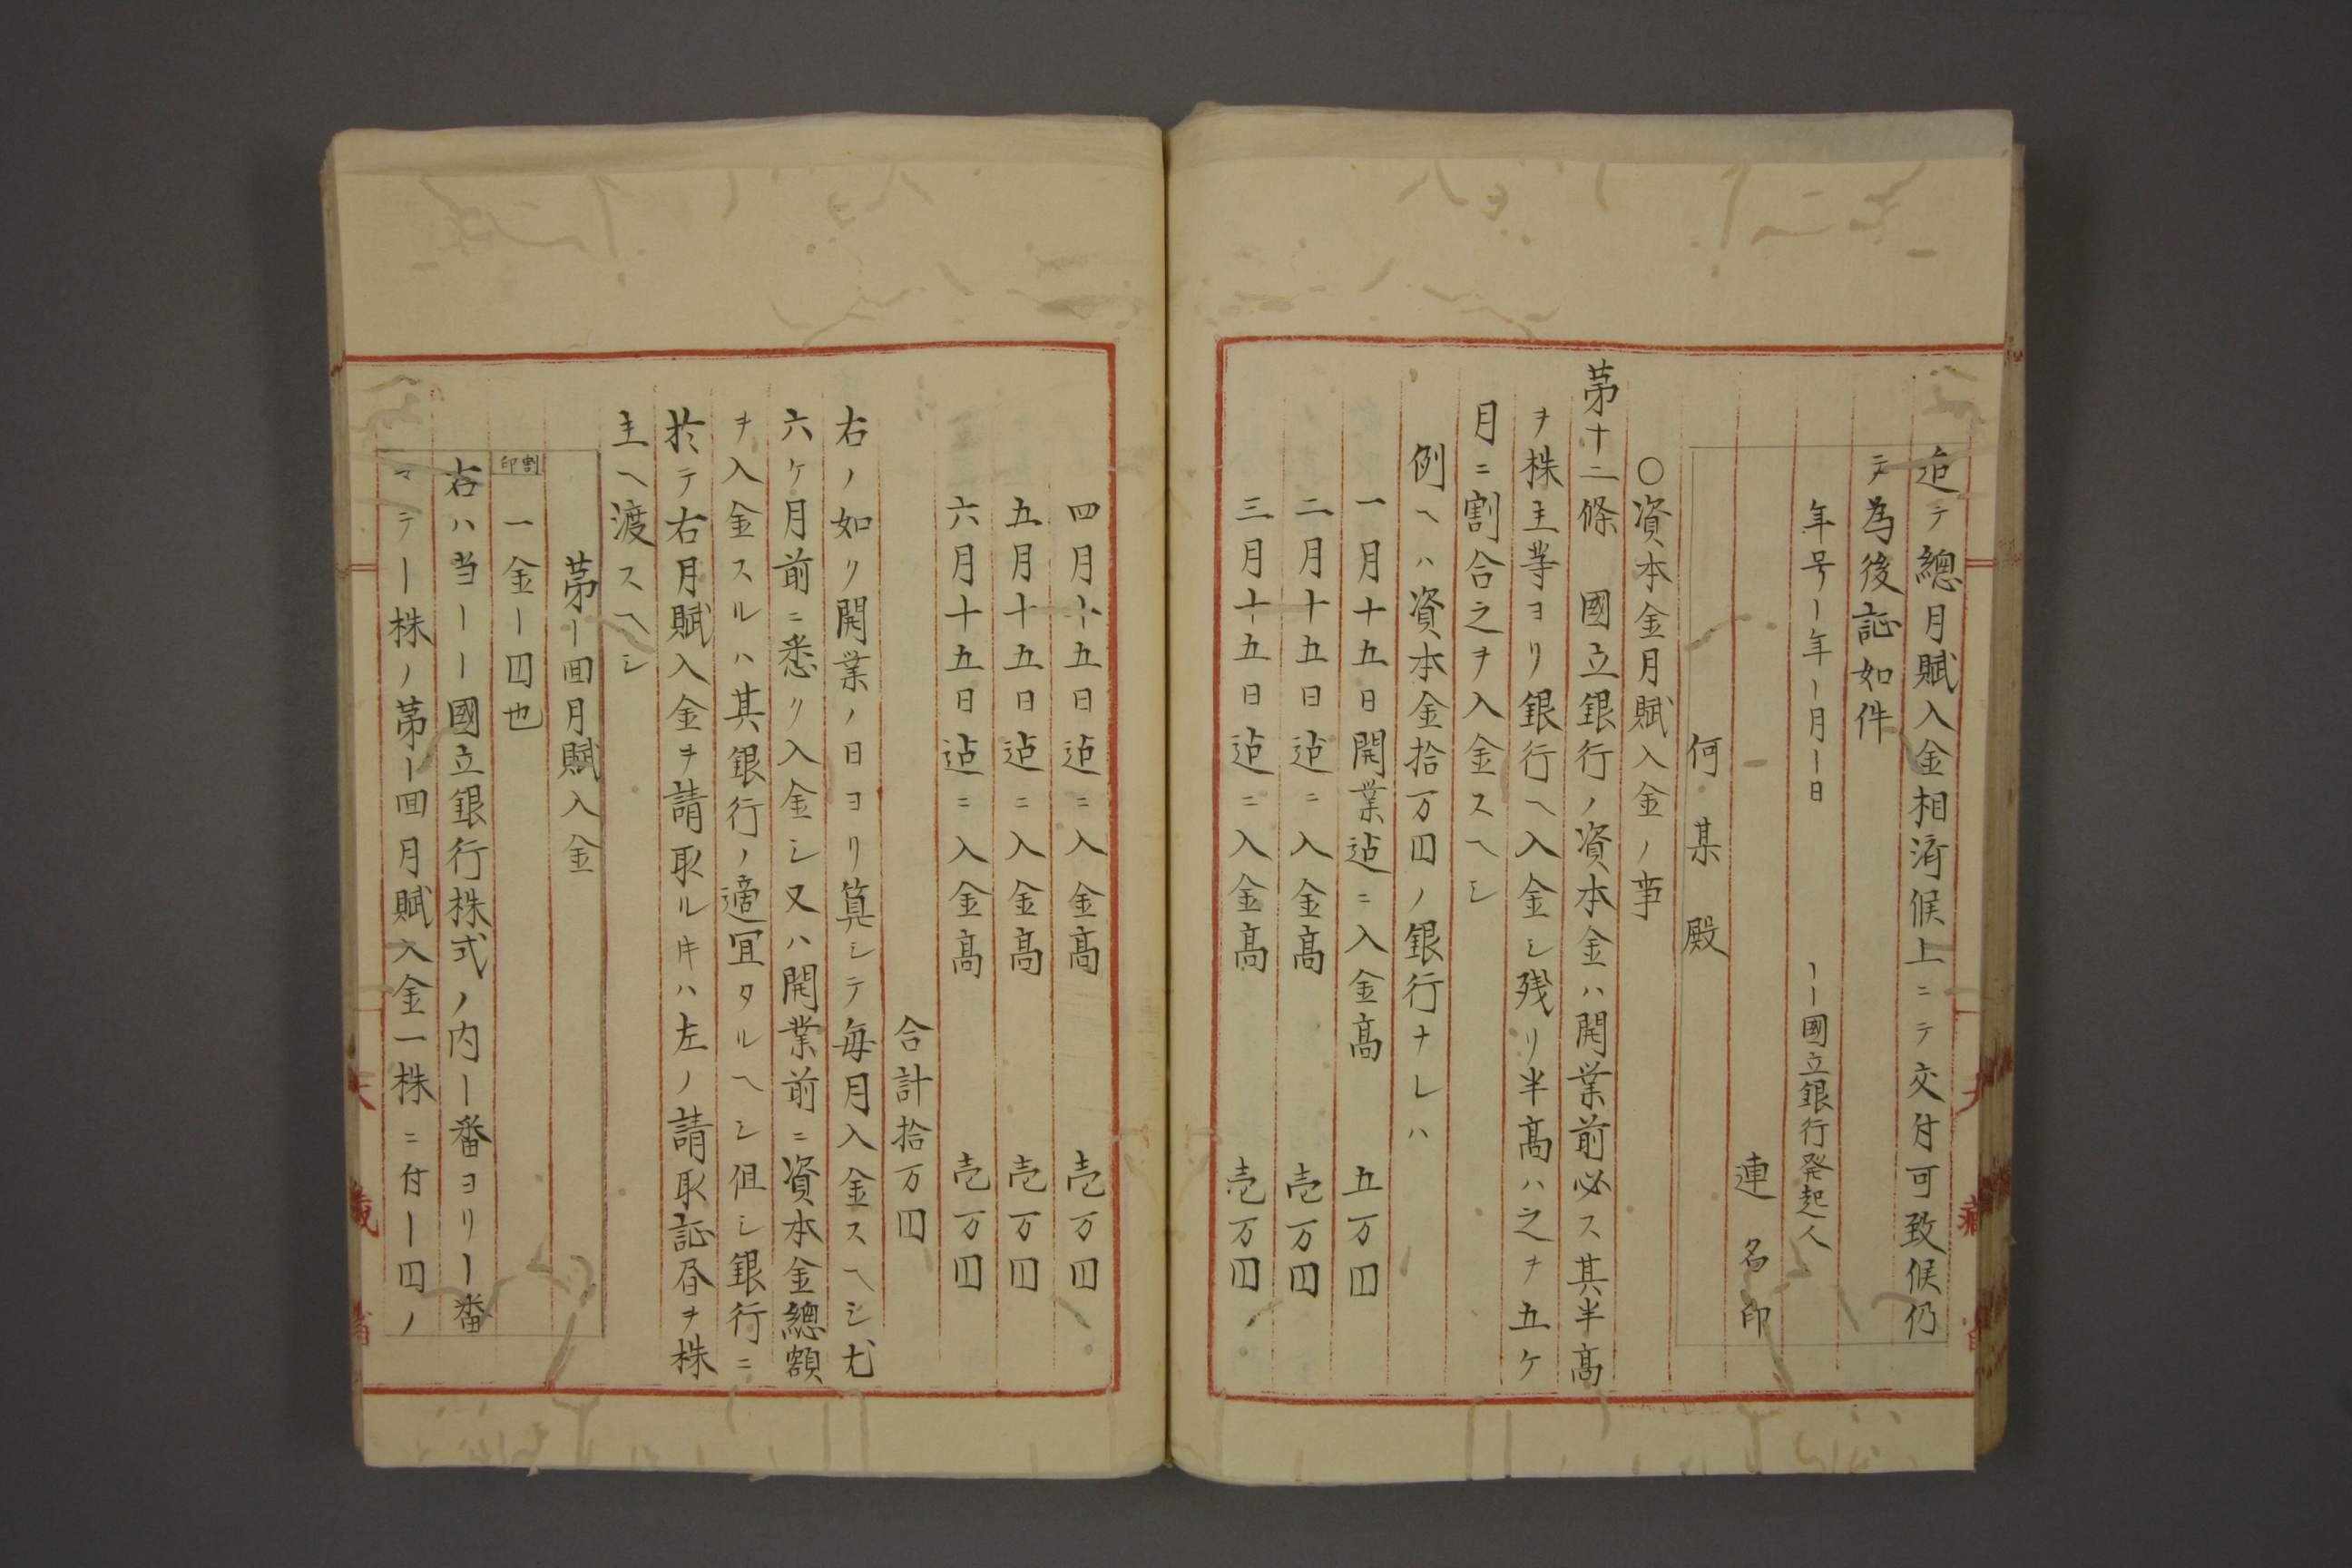 追テ總月賦入金相済候上ニテ交付可致候仍
テ為後証如件
年号ー年ー月ー日　ーー國立銀行発起人
連名印
何某殿
○資本金月賦入金ノ事
第十二條　國立銀行ノ資本金ハ開業前必ス其半高
ヲ株主等ヨリ銀行ヘ入金シ残リ半高ハ之ヲ五ケ
月ニ割合之ヲ入金スヘシ
例ヘハ資本金拾万円ノ銀行ナレハ
一月十五日開業迠ニ入金高　五万円
二月十五日迠ニ入金高　壱万円
三月十五日迠ニ入金高　壱万円
四月十五日迠ニ入金高　壱万円
五月十五日迠ニ入金高　壱万円
六月十五日迠ニ入金高　壱万円
合計拾万円
右ノ如リ開業ノ日ヨリ算シテ毎月入金スヘシ尤
六ケ月前ニ悉リ入金シ又ハ開業前ニ資本金總額
ヲ入金スルハ其銀行ノ適冝タルヘシ但シ銀行ニ
於テ右月賦入金ヲ請取ル片ハ左ノ請取証書ヲ株
主ヘ渡スヘシ
第ー回月賦入金
割印
一金ー円也
右ハ当ーー國立銀行株式ノ内ー番ヨリー番
マテー株ノ第ー回月賦入金一株ニ付ー円ノ
大藏省